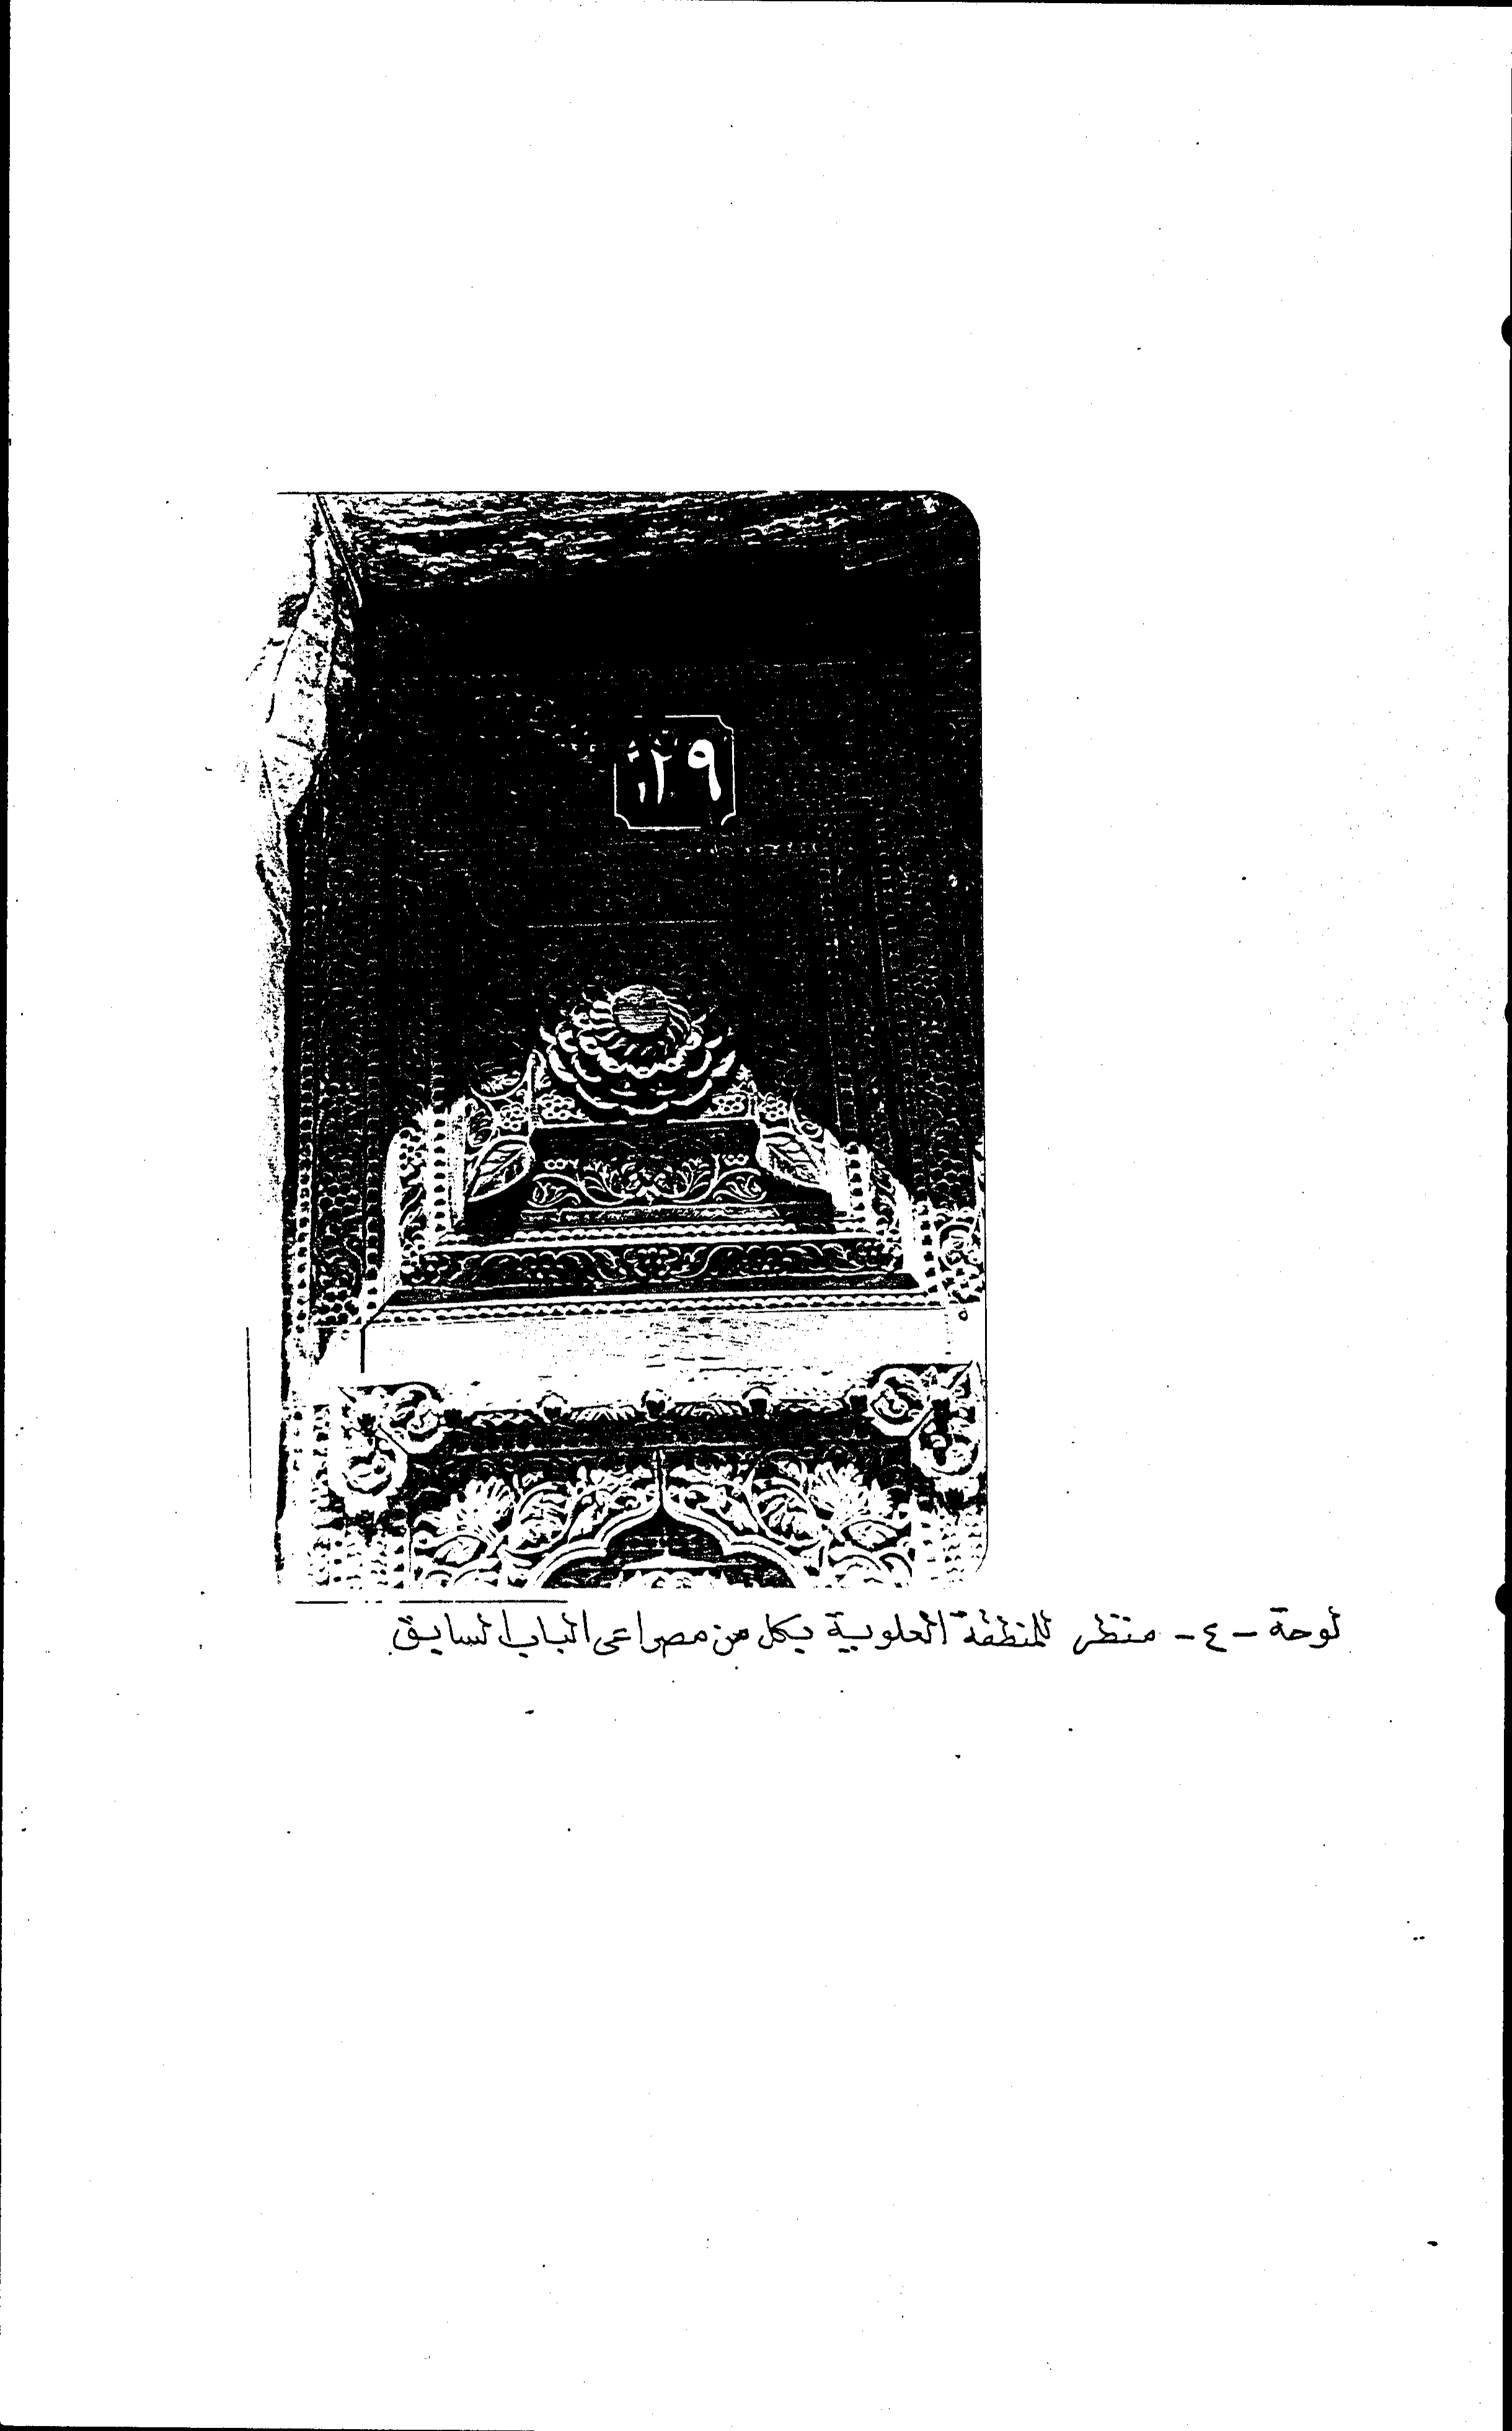 ٢٩
لوحة - ٤ - منظر للمنطقة العلوية بكل من مصراعى الباب السابق.